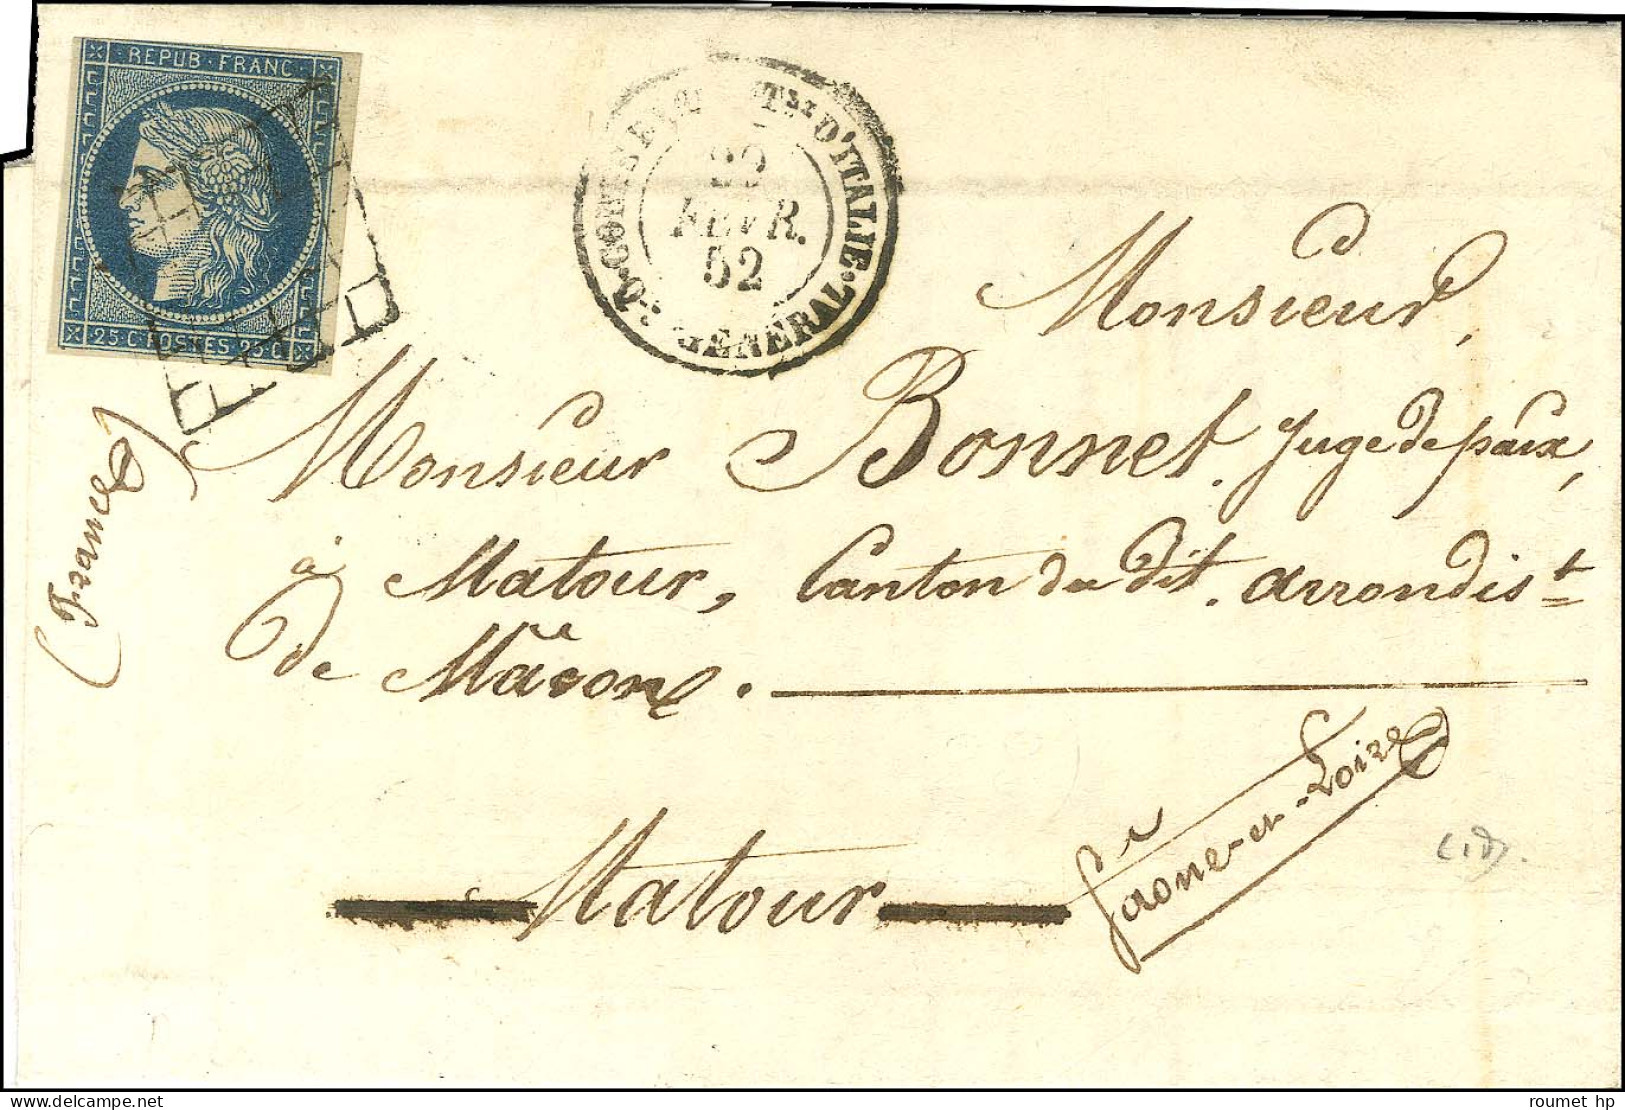 REPUB·FRANC
25·C POSTES·25·C
D'ITALIE · Qr GENERAL
22
FEVR.
52
(France)
Monsieur,
Monsieur Bonnet. Juge de paix,
à Matour, Canton du dit. arrondist
de Mâcon.
Matour
Saône-et-Loire
(18).
roumet hp